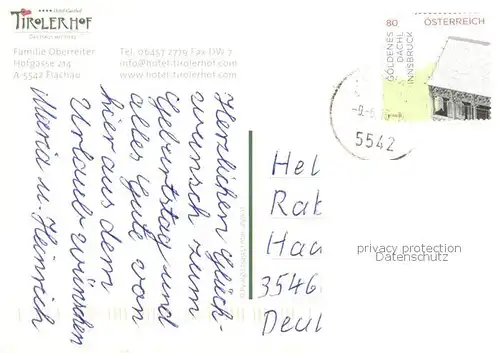 ★★★★ Hotel-Gasthof
TIROLERHOF
Familie Oberreiter
Hofgasse 214
A-5542 Flachau
Tel. 06457 2779 Fax DW 7
info@hotel-tirolerhof.com
www.hotel-tirolerhof.com
Herzlichen Glück-
wunsch zum
Geburtstag und
alles Gute von
hier aus dem
Urlaub wünschen
Maria u. Heinrich
80 ÖSTERREICH
GOLDENES
DACHL
INNSBRUCK
5542
Hel
Rat
Haa
3546
Deut
privacy protection
Datenschutz